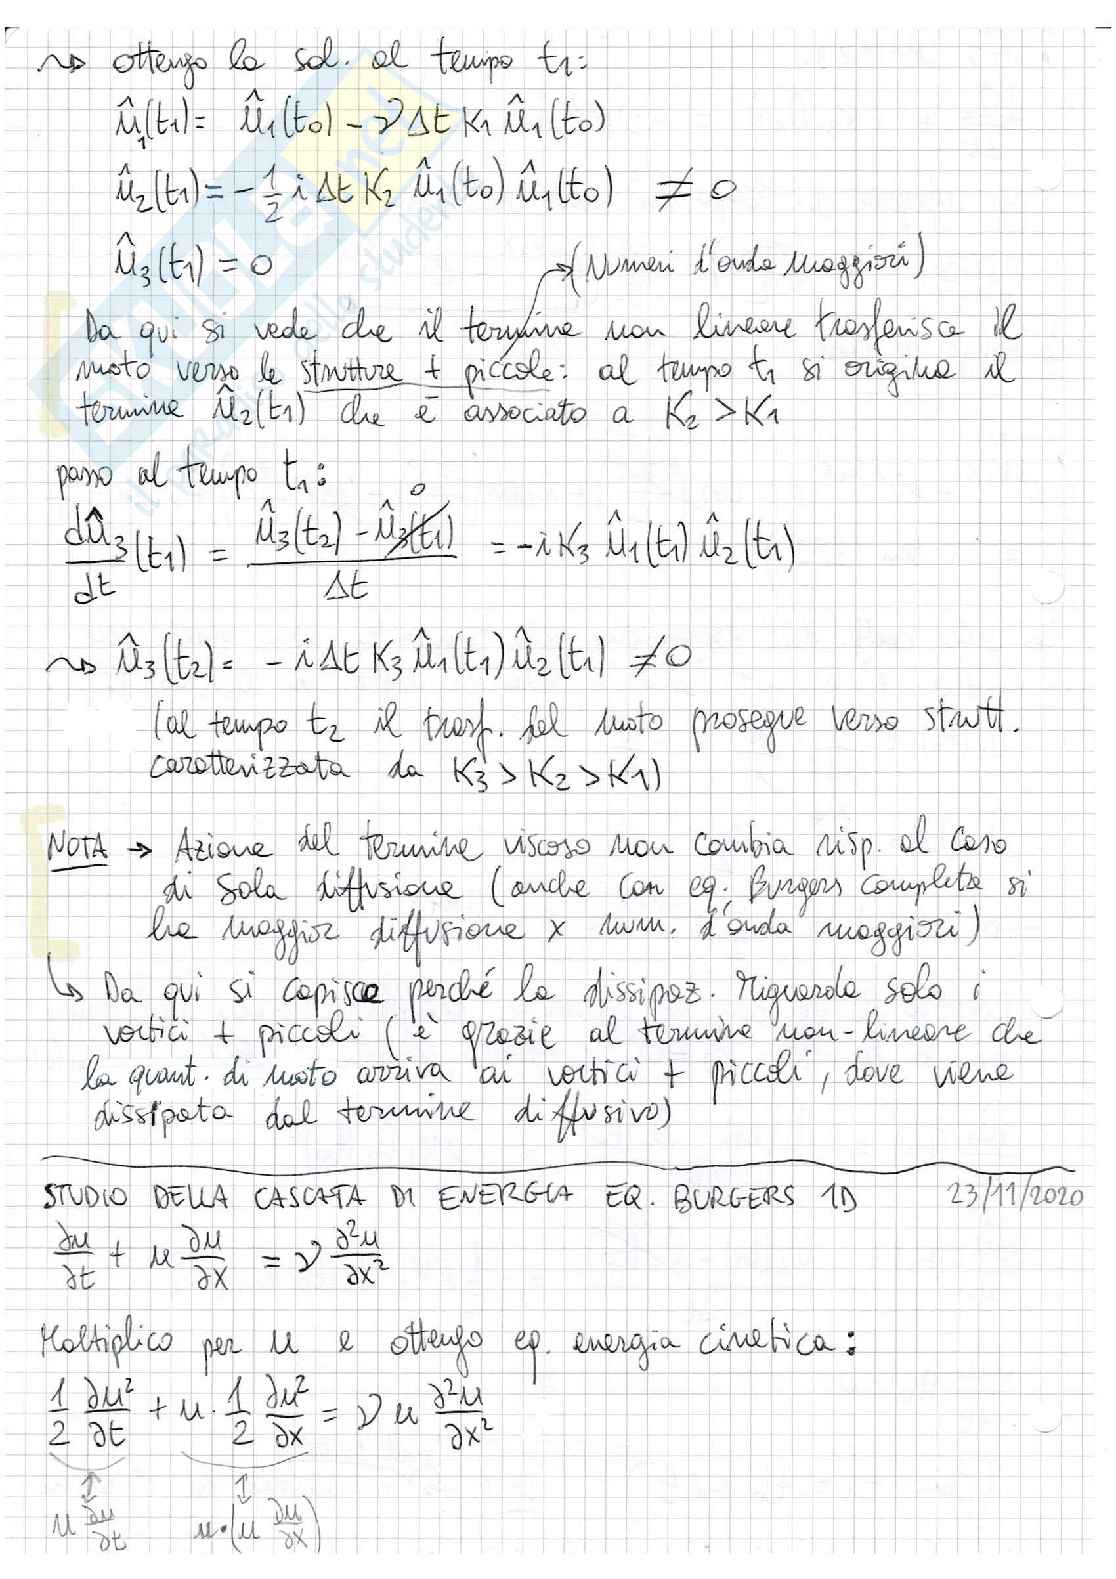 ~> ottengo la sol. al tempo t₁:
û₁(t₁) = û₁(t₀) - ν Δt K₁ û₁(t₀)
û₂(t₁) = - 1/2 i Δt K₂ û₁(t₀) û₁(t₀) ≠ 0
û₃(t₁) = 0 → (Numeri d'onda maggiori)
Da qui si vede che il termine non lineare trasferisce il
moto verso le strutture + piccole: al tempo t₁ si origina il
termine û₂(t₁) che è associato a K₂ > K₁
passo al tempo t₁:
dû₃/dt (t₁) = (û₃(t₂) - û₃(t₁) 0)/Δt = - i K₃ û₁(t₁) û₂(t₁)
~> û₃(t₂) = - i Δt K₃ û₁(t₁) û₂(t₁) ≠ 0
(al tempo t₂ il trasf. del moto prosegue verso strutt.
caratterizzata da K₃ > K₂ > K₁)
NOTA → Azione del termine viscoso non cambia risp. al caso
di sola diffusione (anche con eq. Burgers completa si
ha maggior diffusione x num. d'onda maggiori)
↳ Da qui si capisce perché la dissipaz. riguarda solo i
vortici + piccoli (è grazie al termine non-lineare che
la quant. di moto arriva ai vortici + piccoli, dove viene
dissipata dal termine diffusivo)
STUDIO DELLA CASCATA DI ENERGIA EQ. BURGERS 1D 23/11/2020
∂u/∂t + u ∂u/∂x = ν ∂²u/∂x²
Moltiplico per u e ottengo eq. energia cinetica:
1/2 ∂u²/∂t + u · 1/2 ∂u²/∂x = ν u ∂²u/∂x²
u ∂u/∂t u·(u ∂u/∂x)